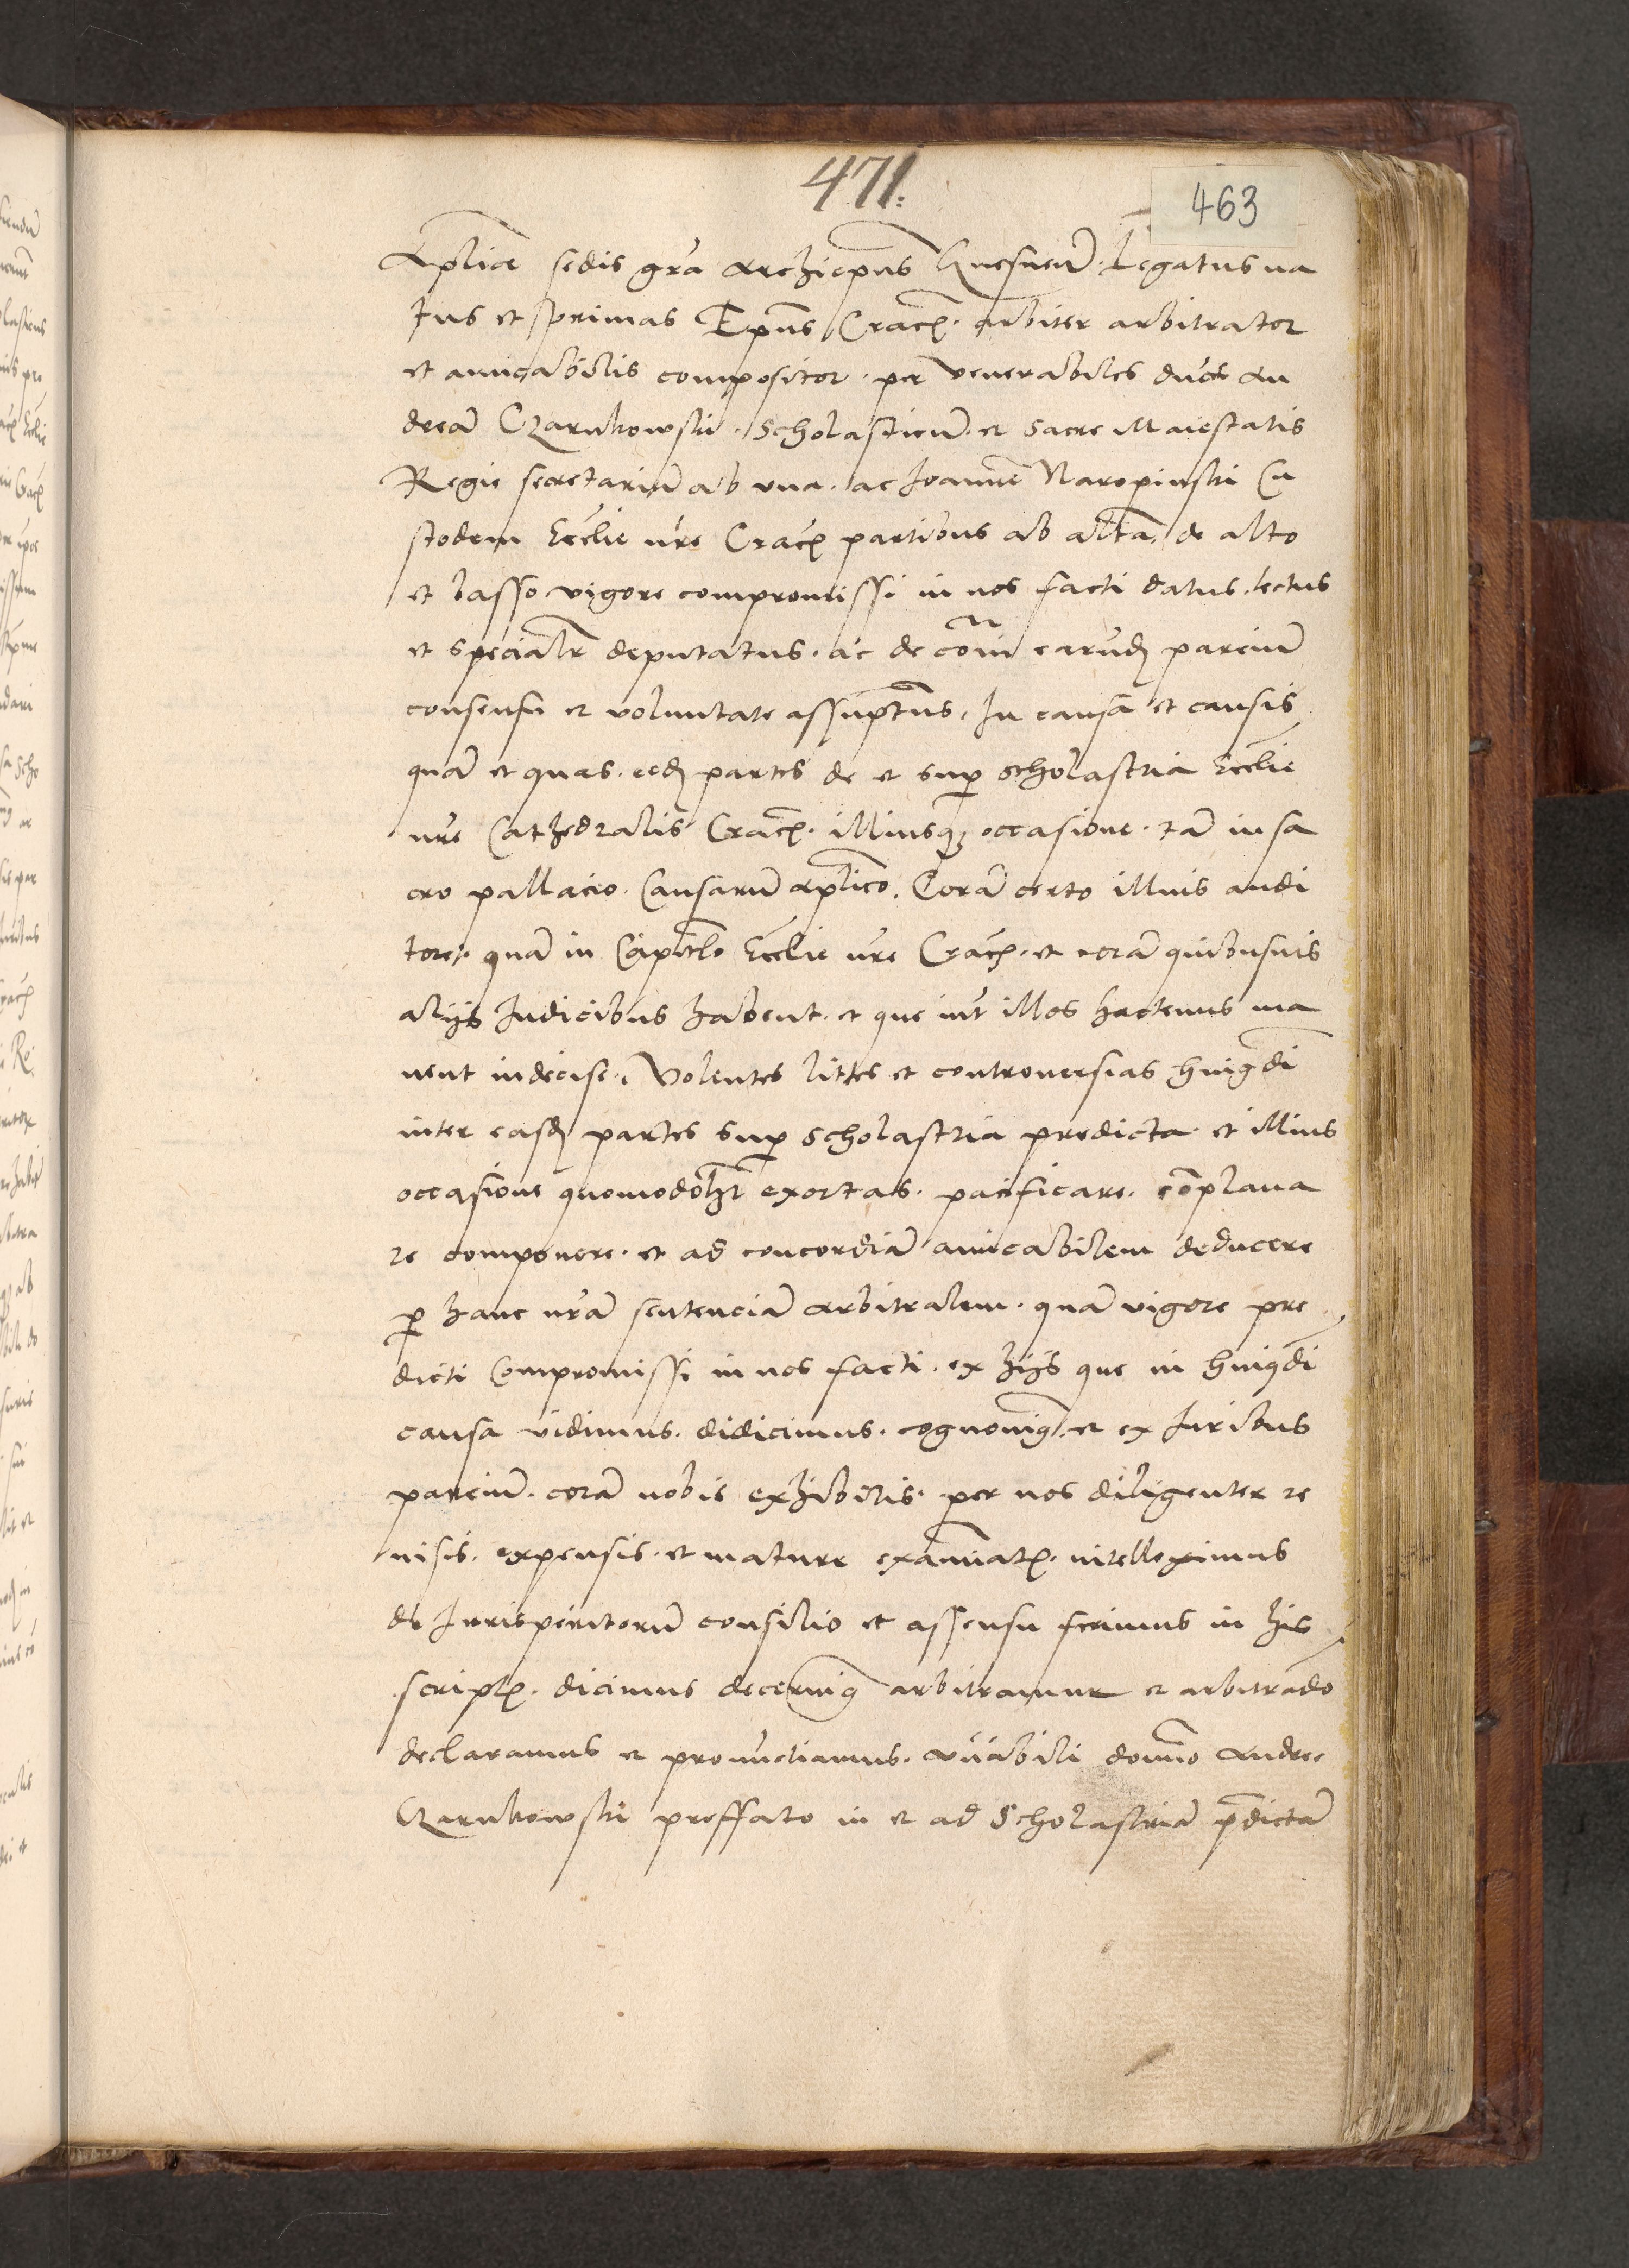 471.
463
Aplice sedis gra archiepus Gnesnen. Legatus na
tus et primas Epus Cracen. arbiter arbitrator
et amicabilis compositor. per venerabiles dnos An
dream Czarnkowski. Scholasticum. et Sacre Maiestatis
Regie secretarium ab una. ac Ioannem Naropinski Cu
stodem Ecclie nre Cracen partibus ab altera, de alto
et basso vigore compromissi in nos facti datus. lectus
et specialr deputatus. ac de coui earund parcium
consensu et voluntate assumptus, In causa et causis
quam et quas. eed partes de et sup scholastria Ecclie
nre Cathedralis Cracen. illiusq3 occasione. tam in sa
cro pallacio. Causarum aplico. Coram certo illius audi
tore. quam in Capitlo Ecclie nre Cracen. et coram quibusuis
alijs Iudicibus habent. et que int illos hactenus ma
nent indecise. Volentes littes et controuersias huigdi
inter easd partes sup scholastria predicta et illius
occasione quomodolzt exortas. pacificare. complana
re componere. et ad concordiam amicabilem deducere
p hanc nram sentenciam arbitralem. quam vigore pre
dicti Compromissi in nos facti. ex hijs que in huigdi
causa vidimus. didicimus. cognouig. et ex Iuribus
parcium. coram nobis exhibitis. per nos diligenter re
uisis. expensis. et mature examinatis. intelleximus
de Iurisperitorum consilio et assensu ferimus in his
scriptis. dicimus decernig arbitramur et arbitrando
declaramus et pronunctiamus. vnabili domino Andree
Czarnkowski preffato in et ad Scholastriam pdictam